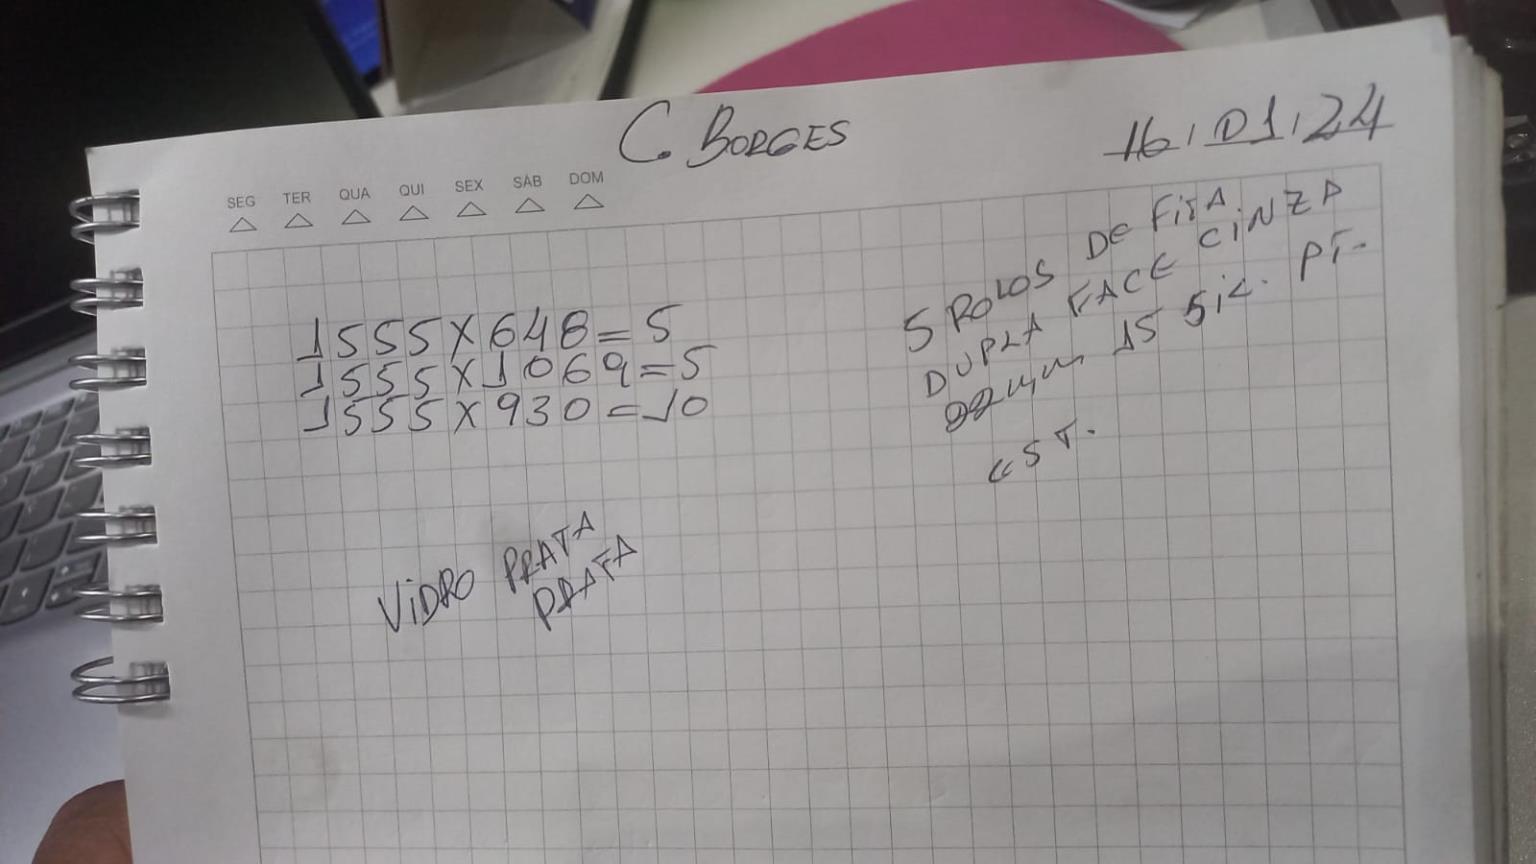 C. BORGES
16/01/24
SEG TER QUA QUI SEX SÁB DOM
1555X648=5
1555X1069=5
1555X930=10
5 ROLOS DE FITA
DUPLA FACE CINZA
15 SIL. PT.
EST.
VIDRO PRATA
PRATA